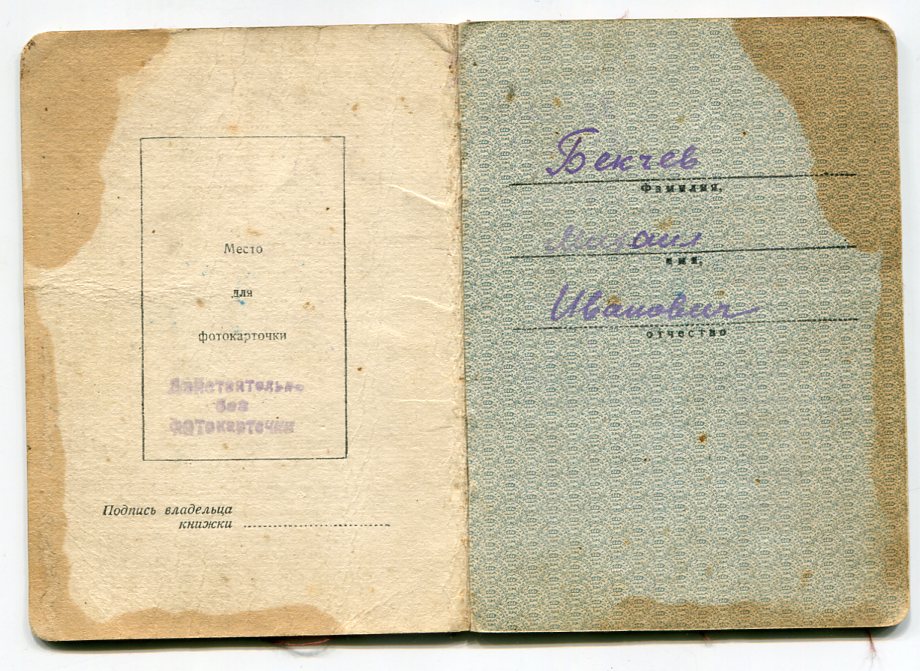 Место
для
фотокарточки
Действительно
без
фотокарточки
Подпись владельца
книжки
Бекчев
Фамилия,
Михаил
имя,
Иванович
отчество